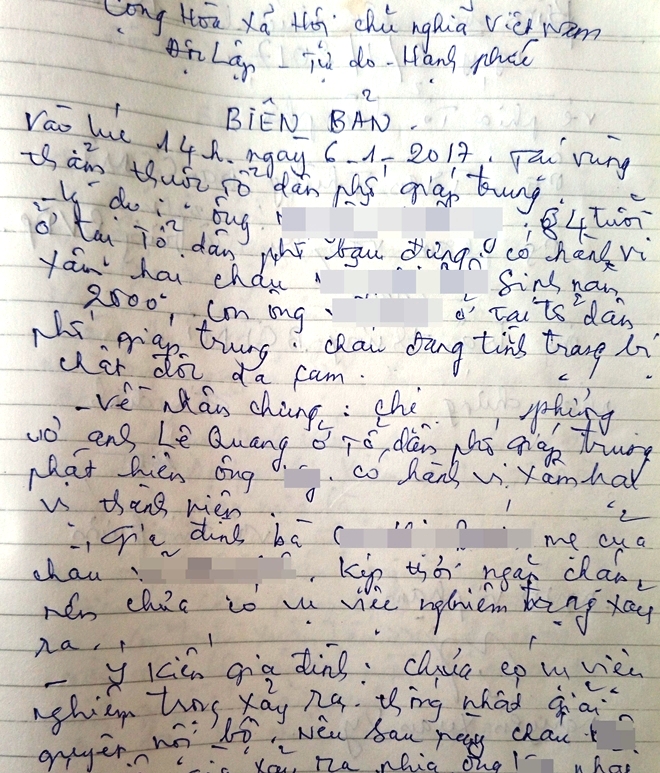 Cộng Hòa Xã Hội chủ nghĩa Việt Nam
Độc Lập - Tự do - Hạnh phúc
BIÊN BẢN.
Vào lúc 14h. ngày 6-1-2017. Tại vùng
thẩm thuộc tổ dân phố giáp trung.
- Lý do: ông 84 tuổi
ở tại Tổ dân phố Bàu đứng có hành vi
xâm hại cháu Sinh năm
2000, con ông ở tại tổ dân
phố giáp trung. cháu đang tình trạng bị
chất độc da cam.
- Về nhân chứng: chị phụng
vợ anh Lê Quang ở Tổ dân phố giáp trung
phát hiện ông có hành vi xâm hại
vị thành niên.
-, Gia đình bà mẹ của
cháu . Kịp thời ngăn chặn,
nên chưa có vụ việc nghiêm trọng xảy
ra.
- Ý kiến gia đình: chưa có vụ việc
nghiêm trọng xảy ra. thống nhất giải
quyết nội bộ. Nếu sau này cháu
xảy ra phía ông